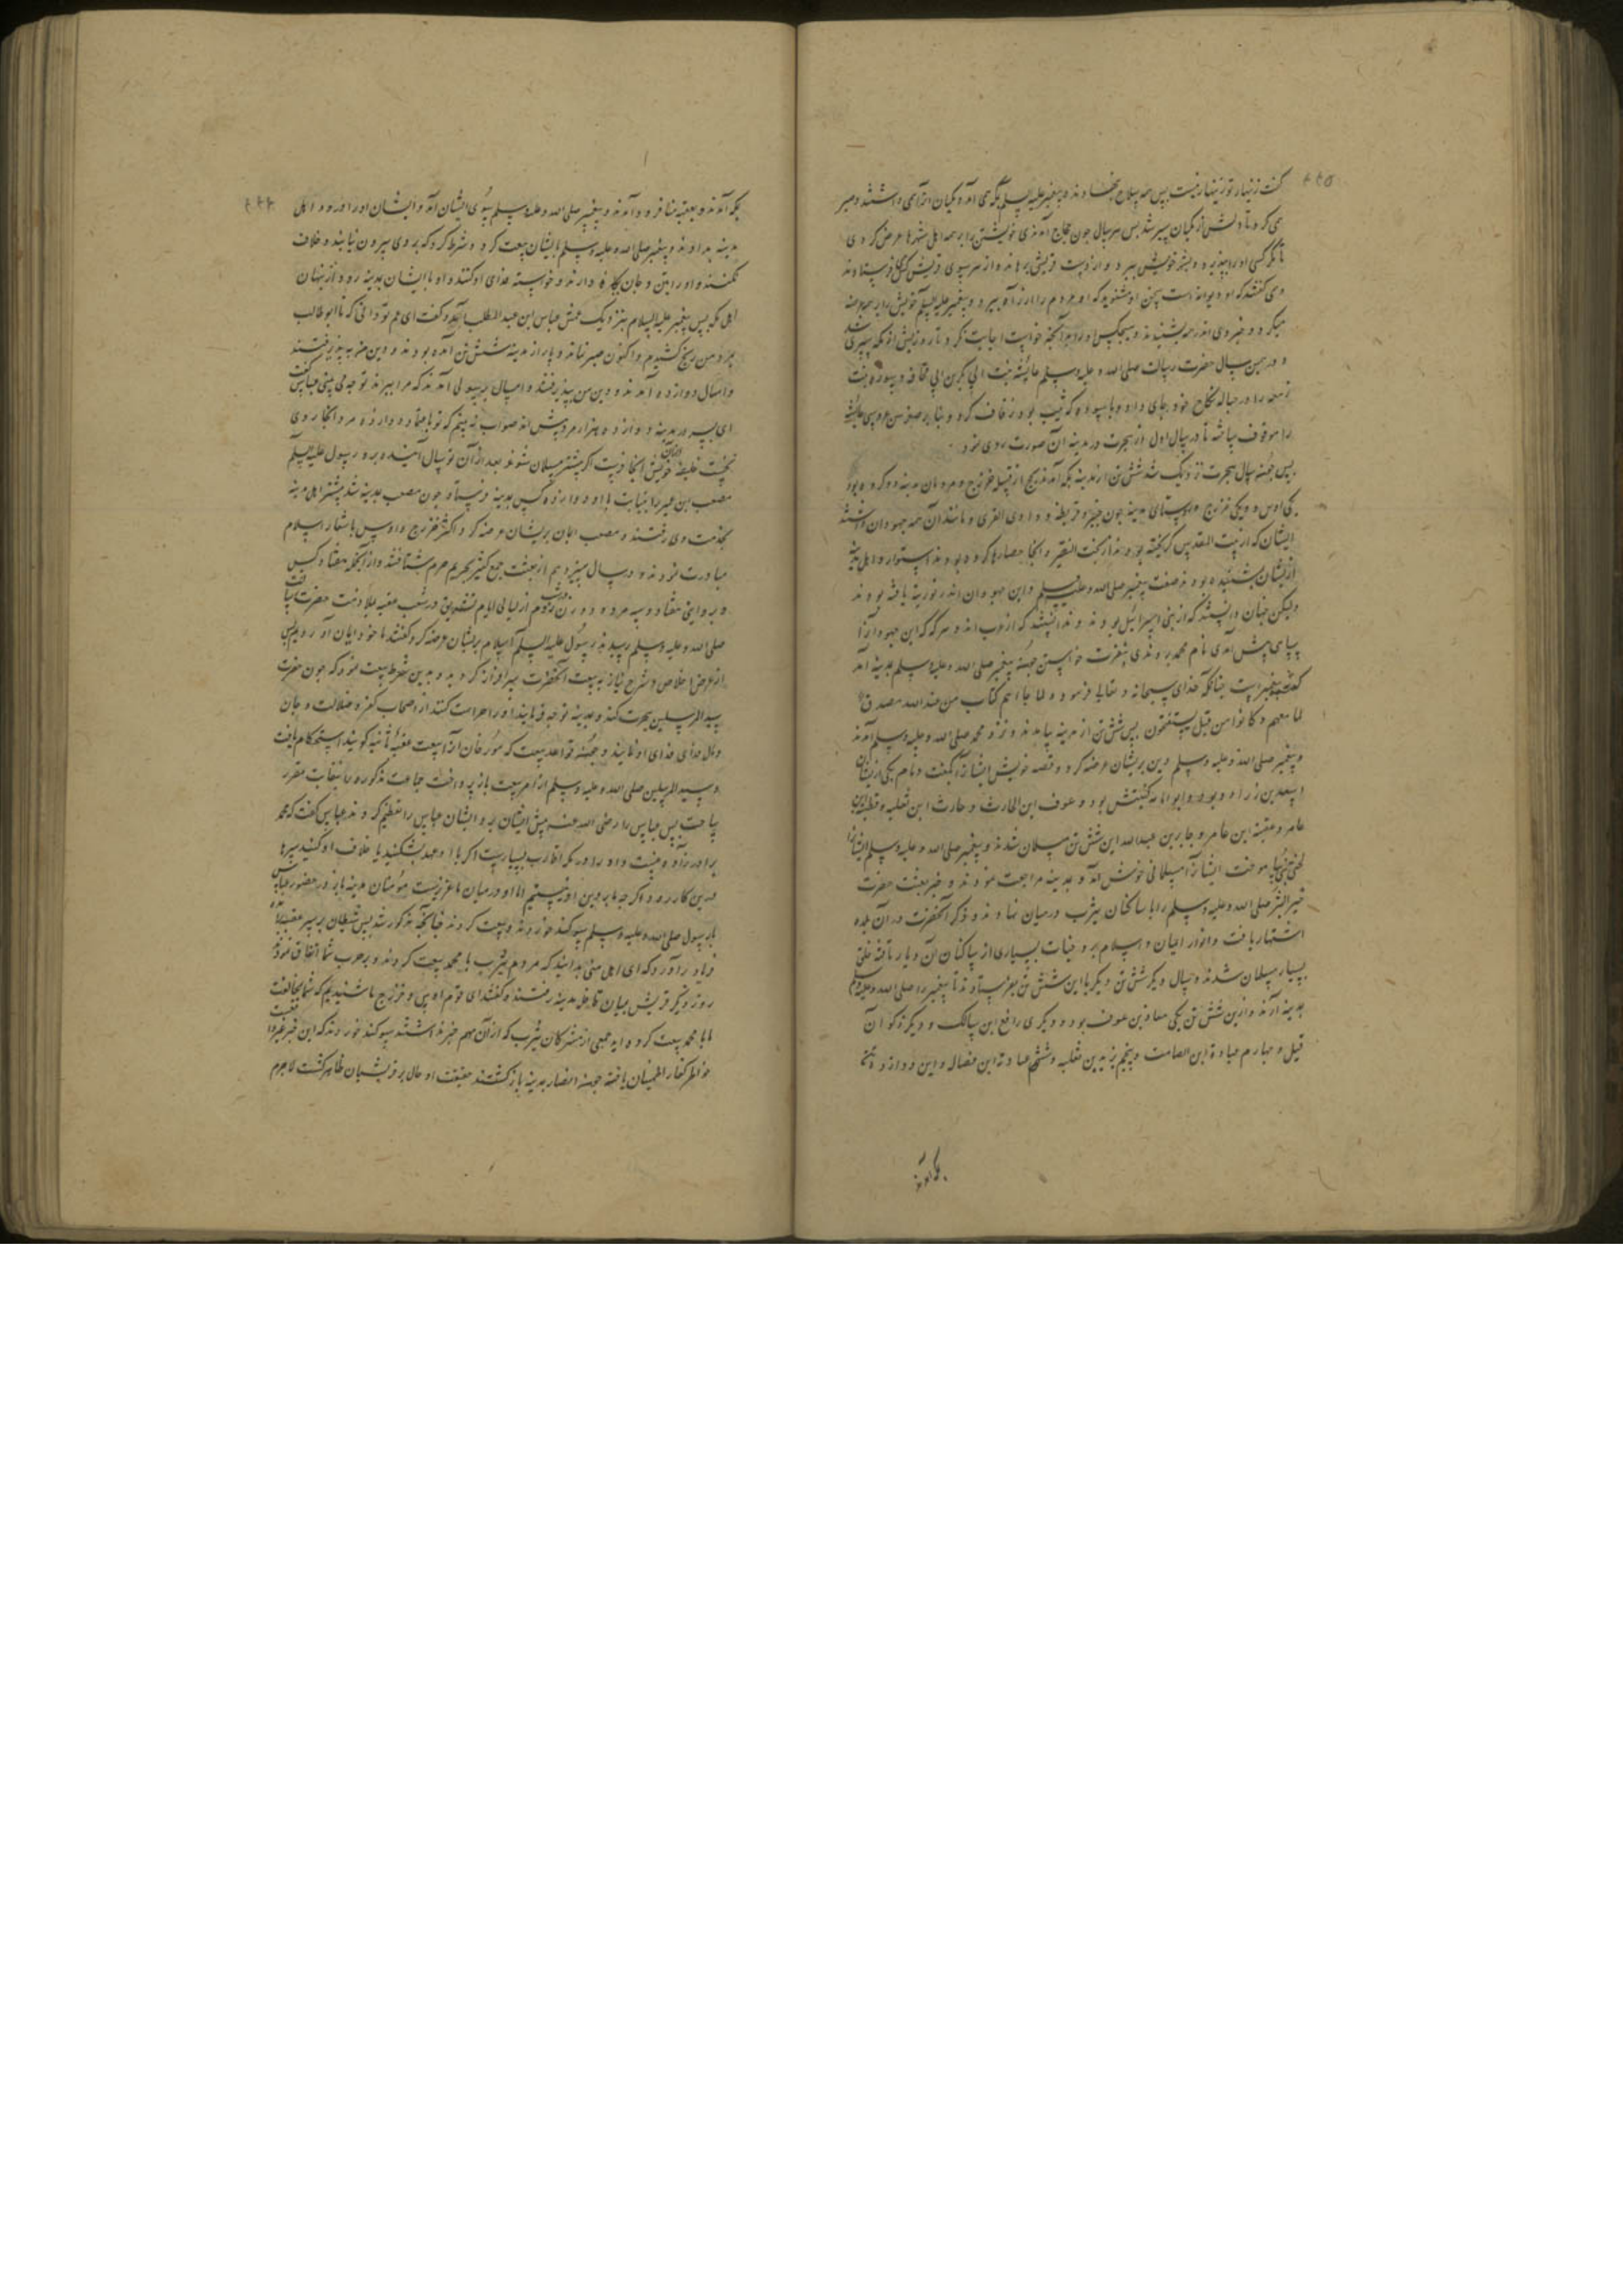 ۴۴۵
گفت زنهار تو زنهار نیست پس همه سلاح بنهادند و پیغمبر علیه السلم بمکه می آمد و مکیان او را می داشتند و صبر
می کرد تا دلش از مکیان پیر شد پس هر سال چون حجاج آمدندی خویشتن را بر همه اهل شهرها عرض کردی
تا مگر کسی او را بپذیرد و بشهر خویش ببرد و از دست قریش برهاند و از هر سوی قریش کس فرستادندی
و می گفتند که او دیوانه است سخن او مشنوید که او مردم را از راه ببرد و پیغمبر علیه السلم خویش را بر همه عرضه
میکرد و خبر وی اندر همه شنیدند و هیچکس او را بدانچه خواست اجابت نکرد
و در همین سال حضرت رسالت صلی الله و علیه و سلم عایشه بنت ابی بکر بن ابی قحافه و سوده بنت
زمعه را در حباله نکاح خود جای داد و با سوده که ثیب بود زفاف کرد و بنابر صغر سن عروسی عایشه
را موقوف ساخته تا در سال اول از هجرت در مدینه آن صورت روی نمود
پس چون سال هجرت نزدیک شد شش تن از مدینه بمکه آمدند بحج از قبیله خزرج و مردمان مدینه دو گروه بود
یکی اوس و یکی خزرج و روستای مدینه چون خیبر و قریظه و وادی القری و مانند آن همه جهودان داشتند
ایشان که از بیت المقدس گریخته بودند از بخت النصر و آنجا حصارها کرده بودند استوار و اهل مدینه
از ایشان شنیده بودند صفت پیغمبر صلی الله و علیه و سلم و این جهودان اندر توریة یافته بودند
ولیکن چنان دانستند که از بنی اسرائیل بود و ندانستند که از عرب اند و هرگه که این جهودان را
بیماری پیش آمدی نام محمد بردندی بنصرت خواستن چون پیغمبر صلی الله و علیه و سلم بمدینه آمد
گفتند نه پیغمبر است چنانکه خدای سبحانه و تعالی فرموده و لما جاءهم کتاب من عند الله مصدق
لما معهم و کانوا من قبل یستفتحون پس شش تن از مدینه بیامدند و نزد محمد صلی الله و علیه و سلم آمدند
و پیغمبر صلی الله و علیه و سلم دین بریشان عرضه کرد و قصه خویش ایشان را بگفت و نام یکی از ایشان
اسعد بن زراره بود و ابو امامه کنیتش بود و عوف ابن الحارث و حارث ابن ثعلبه و قطبه ابن
عامر و عقبه ابن عامر و جابر بن عبدالله این شش تن مسلمان شدند و پیغمبر صلی الله و علیه و سلم ایشان را
نبی بیاموخت ایشان را مسلمانی خوش آمد و بمدینه مراجعت نمودند و خبر بعثت حضرت
خیر البشر صلی الله و علیه و سلم را با ساکنان یثرب در میان نهادند و ذکر آنحضرت در آن بلده
اشتهار یافت و انوار ایمان و اسلام بر وجنات بسیاری از ساکنان آن دیار تافته خلقی
بسیار مسلمان شدند و سال دیگر شش تن دیگر با این شش تن بفرستادند تا پیغمبر را صلی الله و علیه و سلم
بمدینه آرند و ازین شش تن یکی معاذ بن عوف بود و دیگری رافع ابن مالک و دیگر ذکوان
قیل و چهارم عبادة ابن الصامت و پنجم یزید بن ثعلبه و ششم عبادة ابن فضاله و این دوازده تن
بمکه آمدند
۴۴۶
بمکه آمدند و بعقبه منا فرود آمدند و پیغمبر صلی الله و علیه و سلم بسوی ایشان آمد و ایشان او را درود اهل
مدینه بدادند و پیغمبر صلی الله و علیه و سلم با ایشان بیعت کرد و شرط کرد که بر وی بیرون نیایند و خلاف
نکنند و او را بتن و جان نگاه دارند و خواسته فدای او کنند و او با ایشان بمدینه رود از پنهان
اهل مکه پس پیغمبر علیه السلام بنزدیک عمش عباس ابن عبد المطلب آمد و گفت ای عم تو دانی که تا ابو طالب
بمرد من رنج کشیدم و اکنون صبر نماند و پار از مدینه شش تن آمده بودند و دین من بپذیرفتند
و امسال دوازده آمدند و دین من بپذیرفتند و امسال برسولی آمدند که مرا ببرند تو چه می بینی عباس گفت
ای پسر در مدینه دوازده هزار مرد بیش اند صواب نه بینم که تو با هفتاد و دوازده مرد آنجا روی
نخست خلیفه خویش آنجا فرست اگر بیشتر مسلمان شوند بعد از آن تو سال آینده برو رسول علیه السلم
مصعب ابن عمیر را بنیابت با او دوازده کس بمدینه فرستاد چون مصعب بمدینه شد بیشتر اهل مدینه
بخدمت وی رفتند و مصعب ایمان بریشان عرضه کرد و اکثر خزرج و اوس باشعار اسلام
مبادرت نمودند و در سال سیزدهم از بعثت جمع کثیر بحریم حرم شتافتند و از آنجمله هفتاد کس
و بروایتی هفتاد و سه مرد و دو زن در شب دوم از لیالی ایام تشریق در شعب عقبه بملازمت حضرت رسالت
صلی الله و علیه و سلم رسیدند رسول علیه السلم اسلام بریشان عرضه کرد گفتند ما خود ایمان آوردیم پس
از عرض اخلاص و شرح نیاز به بیعت آنحضرت سرافراز گردیدند بدین شرط بیعت نمود که چون حضرت
سید المرسلین هجرت کند و بمدینه توجه فرمایند او را حراست کنند از اصحاب کفر و ضلالت و جان
و مال خود فدای او نمایند و چون قواعد بیعت که مورخان آنرا بیعت عقبه ثانیه گویند استحکام یافت
و سید المرسلین صلی الله و علیه و سلم از امر بیعت باز پرداخت جماعت مذکوره بانقابت مقرر
ساخت پس عباس را رضی الله عنه پیش ایشان برد ایشان عباس را تعظیم کردند عباس گفت که محمد
برادرزاده منست و او را در مکه اقارب بسیارست اگر با او عهد بشکنید یا خلاف او کنید سرها
درین کار رود اگر چه ما بر دین او نیستیم اما او در میان ما عزیزست مؤمنان مدینه باز در حضور عباس
با رسول صلی الله و علیه و سلم سوگند خوردند و بیعت کردند چنانچه مذکور شد پس شیطان بر سر عقبه
فریاد برآورد که ای اهل منی بدانید که مردم یثرب با محمد بیعت کردند و بر حرب شما اتفاق نمودند
روز دیگر قریش میان قبایل مدینه رفتند و گفتند ای قوم اوس و خزرج ما شنیدیم که شما بمخالفت
ما با محمد بیعت کرده اید جمعی از مشرکان یثرب که از آن مهم خبر نداشتند سوگند خوردند که این خبر غیر واقعست
خواطر کفار اطمینان یافته چون انصار بمدینه باز گشتند حقیقت احوال بر قریشیان ظاهر گشت لاجرم